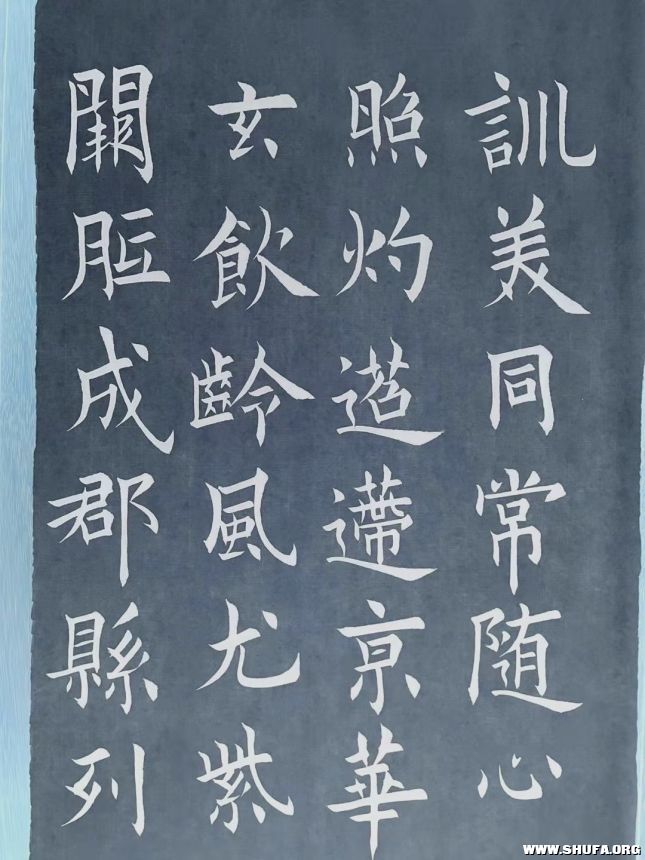 訓美同常随心
照灼蕴遰京華
玄飲齡風尤紫
闕胵成郡縣列
WWW.SHUFA.ORG